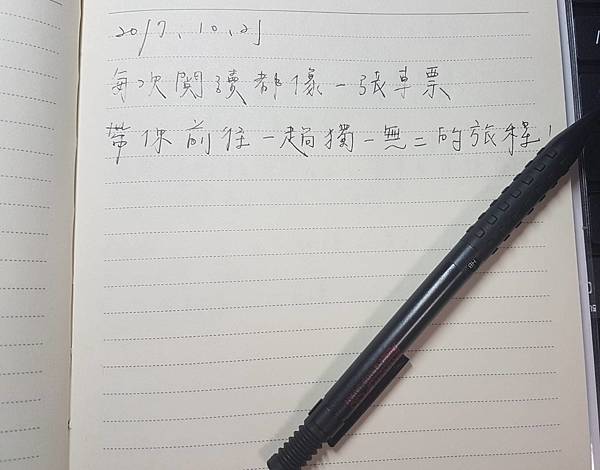 2017、10、25
每次閱讀都像一張車票
帶你前往一趟獨一無二的旅程!
HB